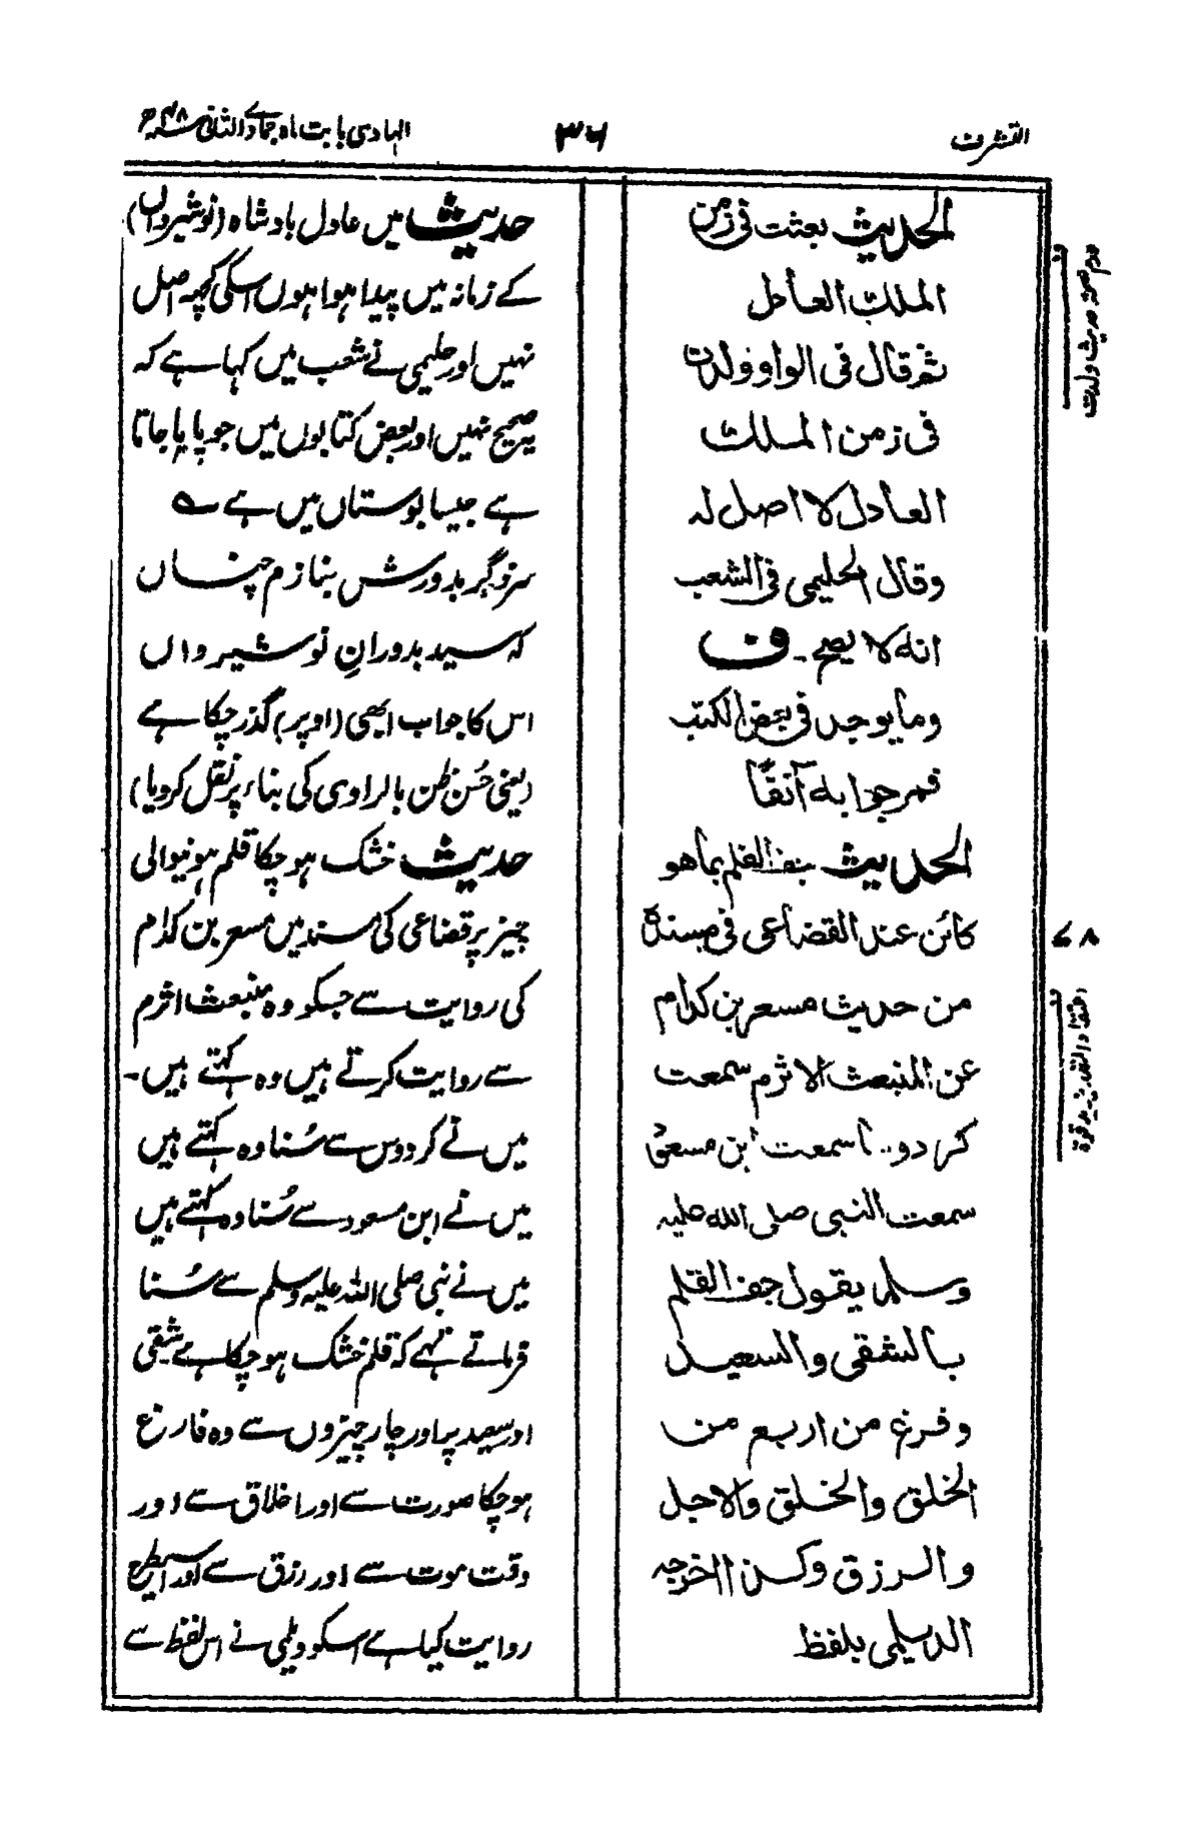 التشرف
۳۶
الہادی بابت ماہ جمادے الثانی ۴۸ھ
الحدیث بعثت فی زمن
الملك العادل
ثم قال فی الواو ولدت
فی زمن الملك
العادل لا اصل له
وقال الحلیمی فی الشعب
انه لا یصح۔ ف
وما یوجد فی بعض الکتب
فمر جوابه آنفًا
الحدیث جف القلم بما هو
کائن عند القضاعی فی مسنده
من حدیث مسعر بن کدام
عن المنبعث الاثرم سمعت
کردو.. اسمعت ابن مسعود
سمعت النبی صلی الله علیه
وسلم یقول جف القلم
بالشقی والسعید
وفرغ من اربع من
الخلق والخلق والاجل
والرزق وکذا اخرجه
الدیلمی بلفظ
حدیث میں عادل بادشاہ (نوشیرواں)
کے زمانہ میں پیدا ہوا ہوں اسکی کچھ اصل
نہیں اور حلیمی نے شعب میں کہا ہے کہ
یہ صحیح نہیں اور بعض کتابوں میں جو پایا جاتا
ہے جیسا بوستاں میں ہے ے
سزد گر بدورش بنازم چناں
کہ سید بدورانِ نوشیرواں
اس کا جواب ابھی (اوپر) گذر چکا ہے
(یعنی حُسن ظن بالراوی کی بناء پر نقل کر دیا)
حدیث خشک ہو چکا قلم ہونیوالی
چیز پر قضاعی کی مسند میں مسعر بن کدام
کی روایت سے جسکو وہ منبعث اثرم
سے روایت کرتے ہیں وہ کہتے ہیں۔
میں نے کردوس سے سُنا وہ کہتے ہیں
میں نے ابن مسعود سے سُنا وہ کہتے ہیں
میں نے نبی صلی اللہ علیہ وسلم سے سُنا
فرماتے تھے کہ قلم خشک ہو چکا ہے شقی
اور سعید پر اور چار چیزوں سے وہ فارغ
ہو چکا صورت سے اور اخلاق سے اور
وقت موت سے اور رزق سے اور اسیطرح
روایت کیا ہے اسکو دیلمی نے اس لفظ سے
عدم صحۃ حدیث ولدت
۷۸